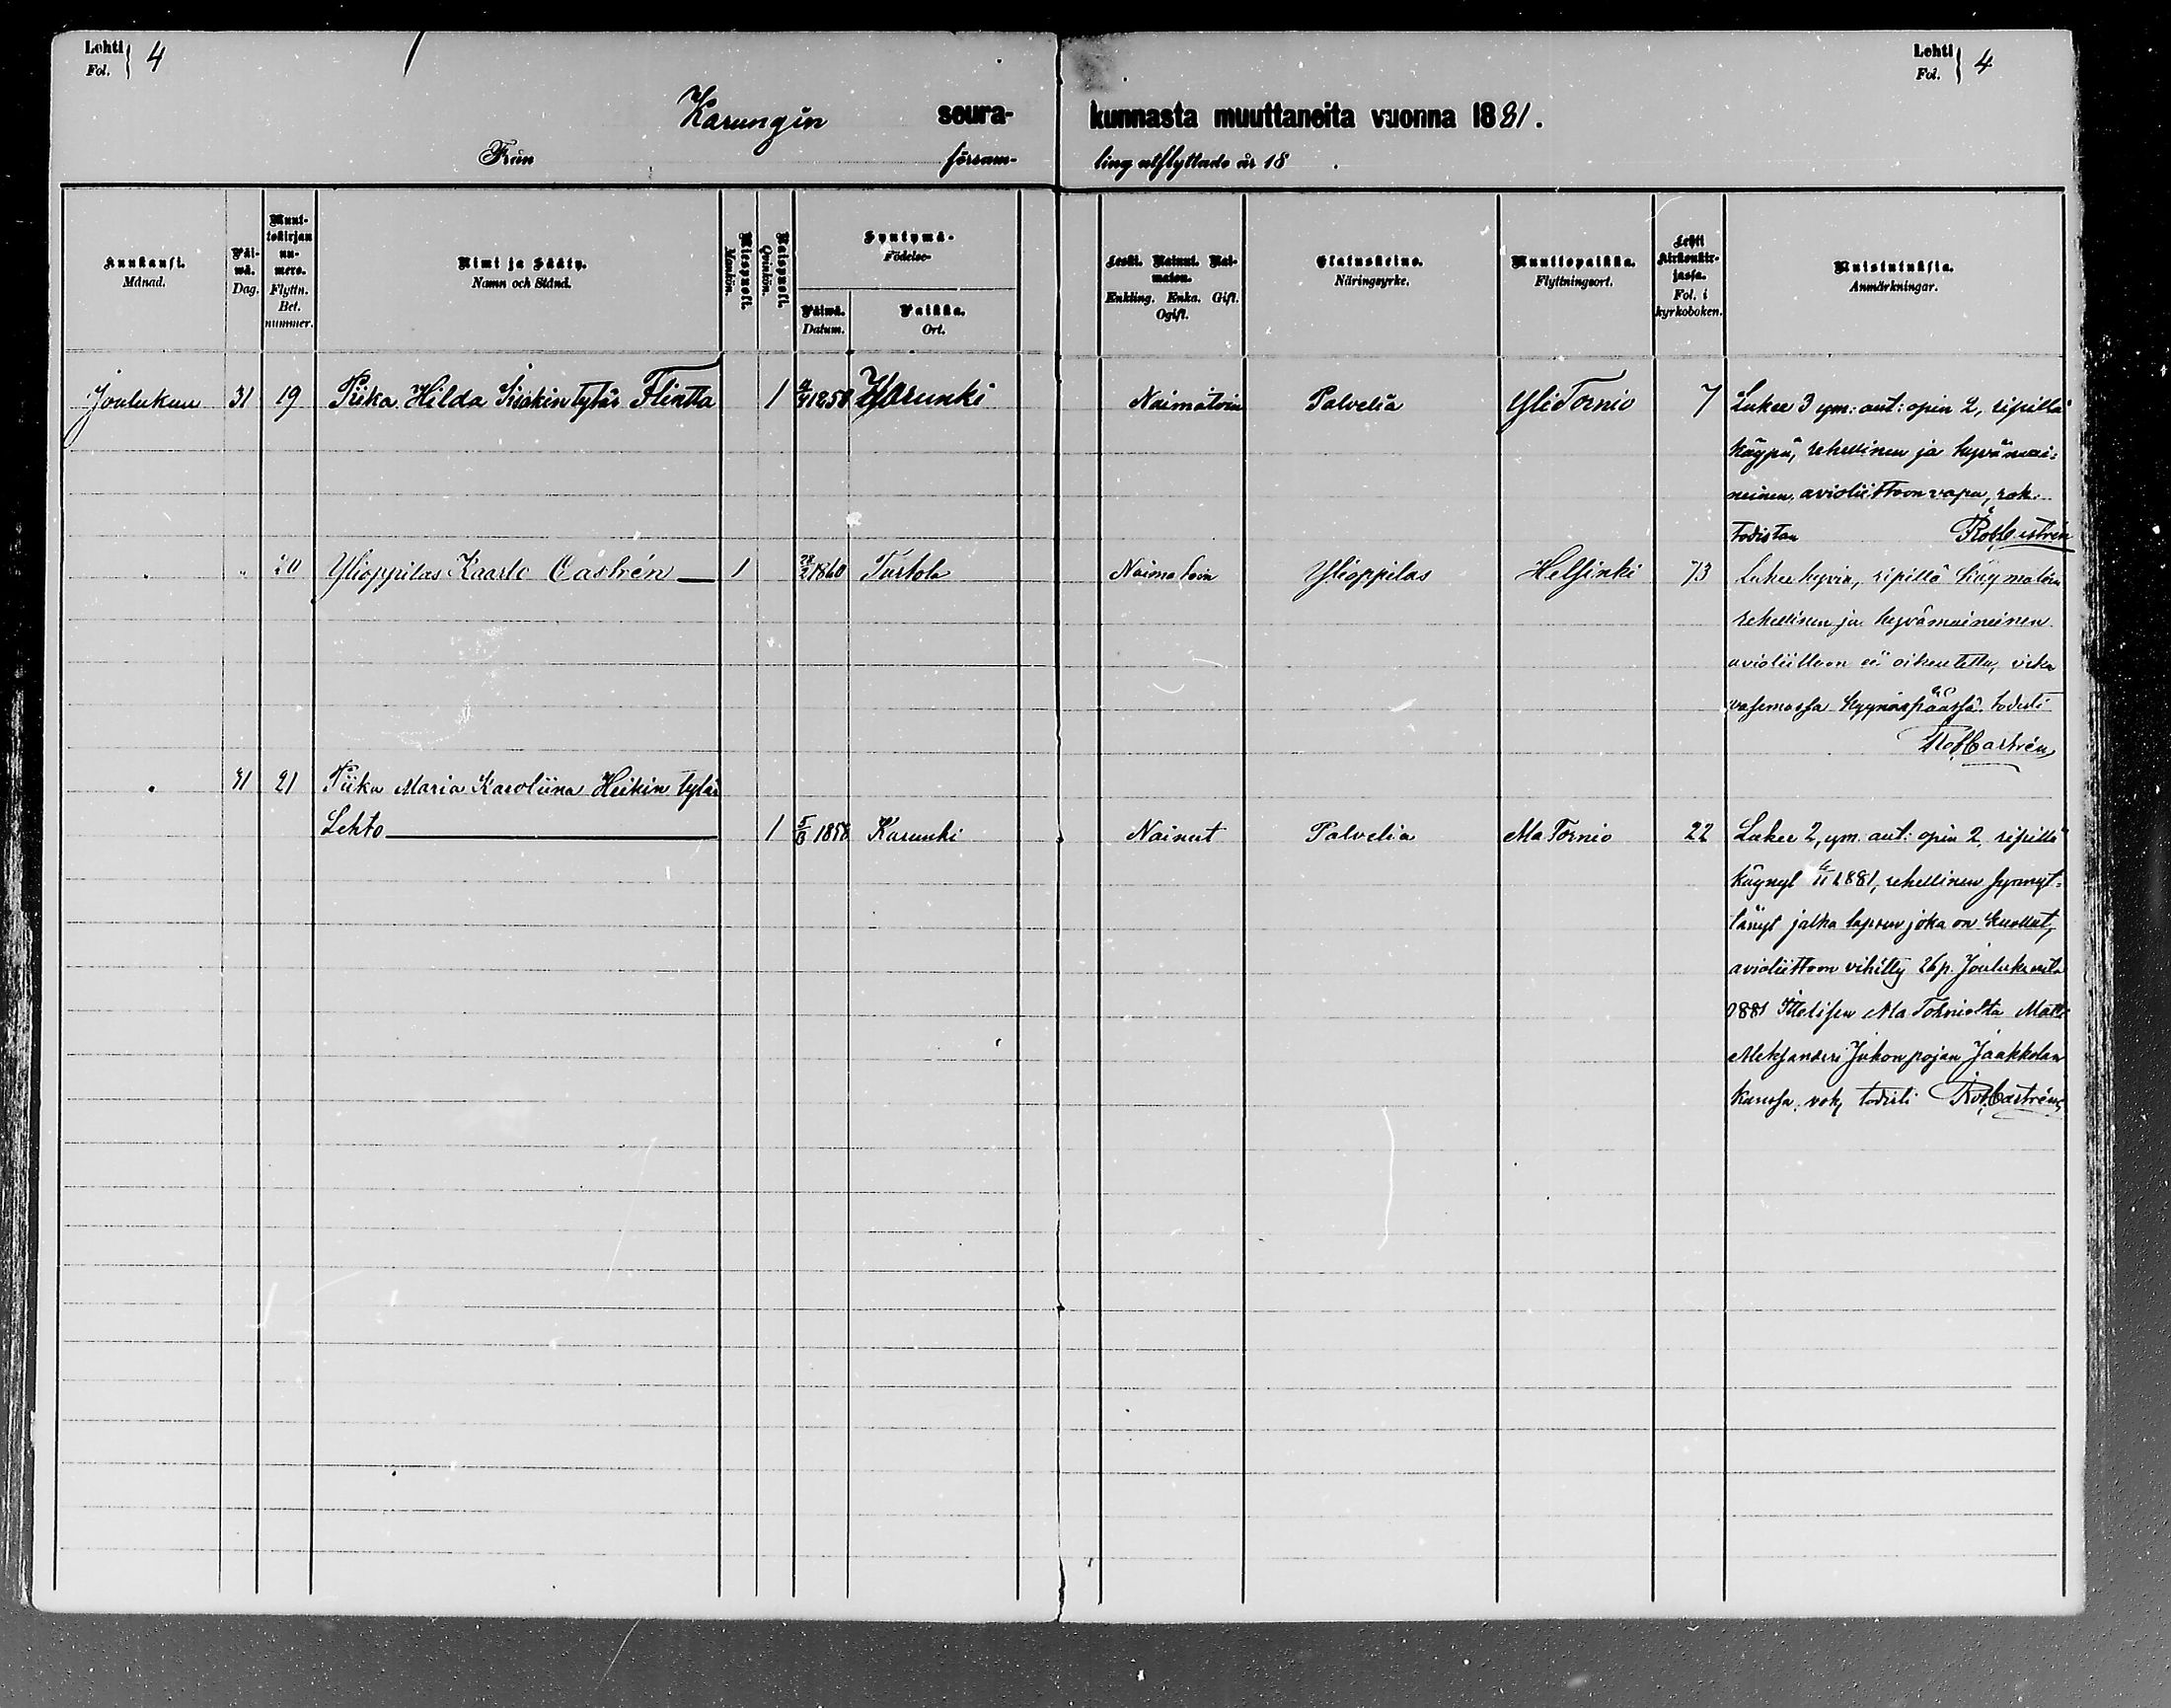 Lehti Fol. 4
Lehti Fol. 4
Karungin seurakunnasta muuttaneita vuonna 1881.
Från församling utflyttade år 18 .
Kuukausi. Månad.
Päiwä. Dag.
Muuttokirjan numero. Flyttn. Bet. nummer.
Nimi ja Sääty. Namn och Stånd.
Miespuoli. Mankön.
Naispuoli. Qvinkön.
Syntymä- Födelse-
Päiwä. Datum.
Paikka. Ort.
Leski. Nainut. Naimaton. Enkling. Enka. Gift. Ogift.
Elatuskeino. Näringsyrke.
Muuttopaikka. Flyttningsort.
Lehti kirkonkirjassa. Fol. i kyrkoboken.
Muistutuksia. Anmärkningar.
Joulukuu 31 19 Piika Hilda Iisakintytär Flintta 1 Karunki Naimatoin Palvelia YliTornio 7 Lukee 3 ym: aut: opin 2, ripillä
käypä, rehellinen ja hyvämai-
neinen, avioliittoon vapa, rok.
todistan Rob Castrén
" 20 Ylioppilas Kaarlo Castrén 1 1860 Turtola Naimatoin Ylioppilas Helsinki 73 Lukee hyvin, ripillä käymatöin
rehellinen ja hyvämaineinen
avioliittoon ei oikeutettu, vika
vasemassa kyynäspäässä todisti
Rob Castrén
31 21 Piika Maria Karoliina Heikin tytär
Lehto 1 1858 Karunki Nainut Palvelia AlaTornio 22 Lukee 2, ym: aut: opin 2, ripillä
käynyt 1881, rehellinen synnyt-
tänyt jalka lapsen joka on kuollut,
avioliittoon vihitty 26p. Joulukuuta
1881 Itselisen AlaTorniolta Matti
Aleksanderi Juhonpojan Jaakkolan
kanssa, rok, todisti Rob Castrén